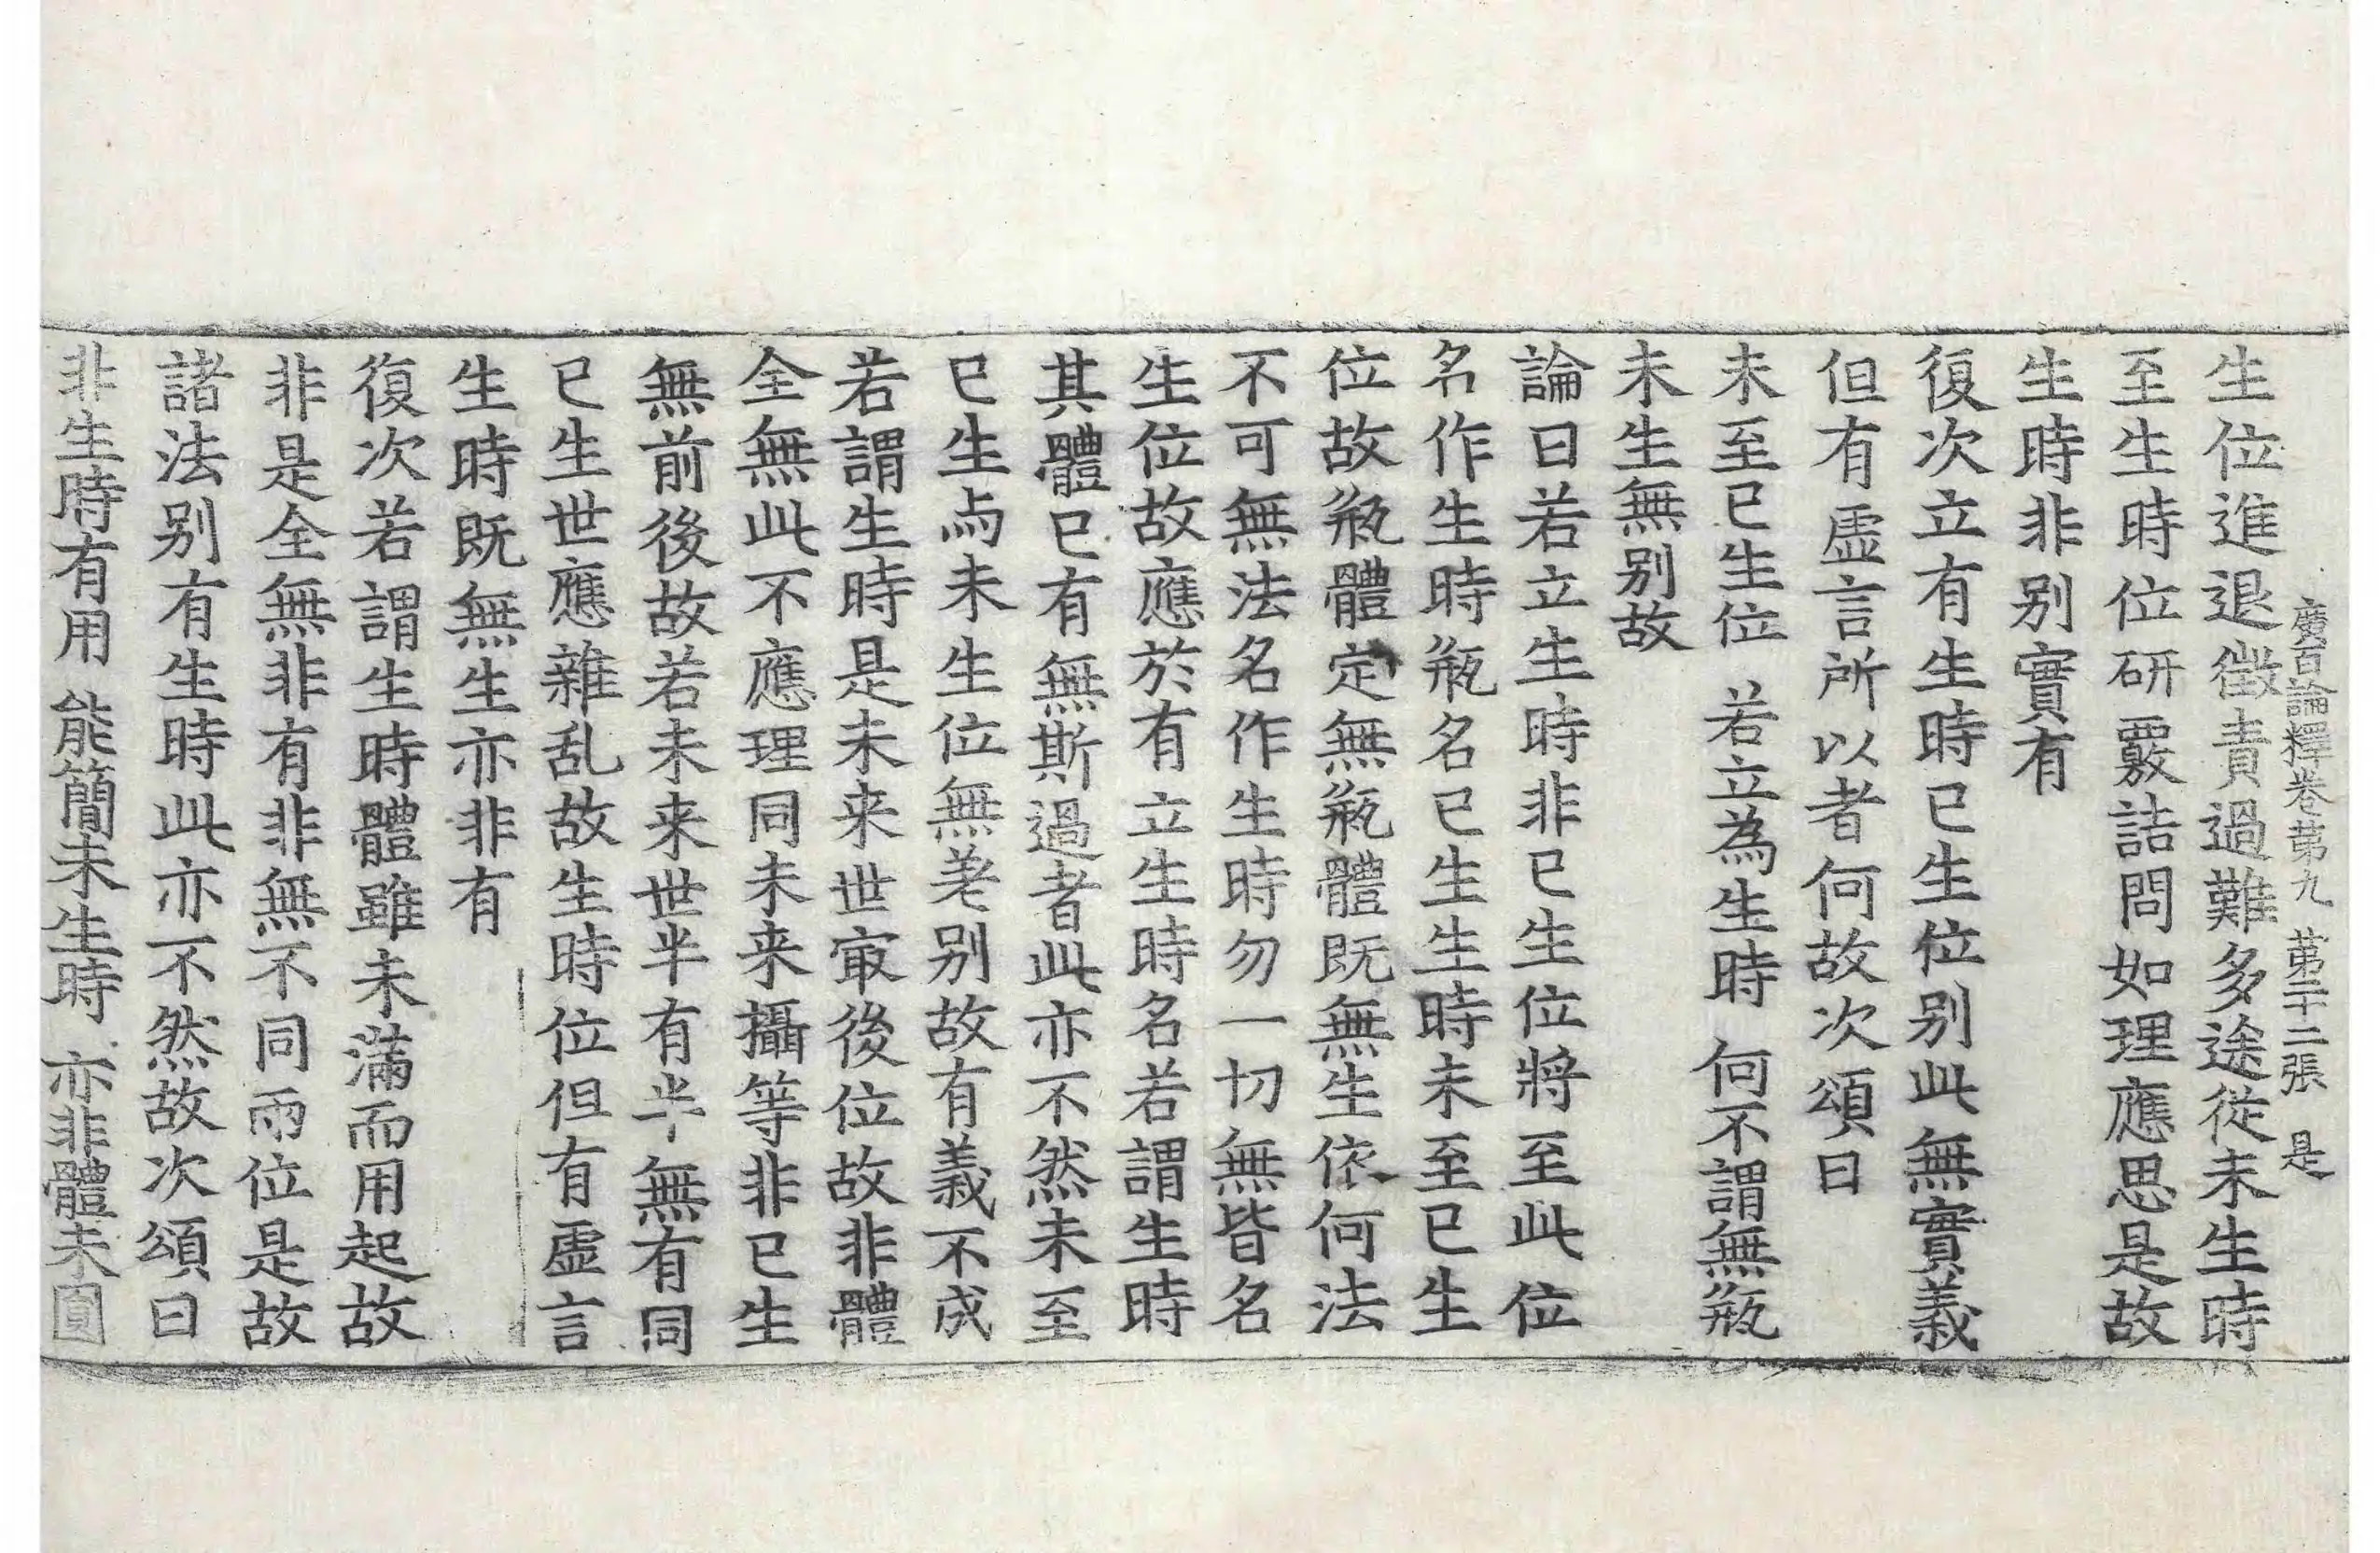 廣百論釋卷第九 第二十二張 是
生位進退徵責過難多途從未生時
至生時位研覈詰問如理應思是故
生時非別實有
復次立有生時已生位別此無實義
但有虛言所以者何故次頌曰
未至已生位 若立為生時 何不謂無瓶
未生無別故
論曰若立生時非已生位將至此位
名作生時瓶名已生生時未至已生
位故瓶體定無瓶體既無生依何法
不可無法名作生時勿一切無皆名
生位故應於有立生時名若謂生時
其體已有無斯過者此亦不然未至
已生与未生位無差別故有義不成
若謂生時是未来世㝡後位故非體
全無此不應理同未来攝等非已生
無前後故若未来世半有半無有同
已生世應雜乱故生時位但有虛言
生時既無生亦非有
復次若謂生時體雖未滿而用起故
非是全無非有非無不同兩位是故
諸法別有生時此亦不然故次頌曰
非生時有用 能簡未生時 亦非體未圓